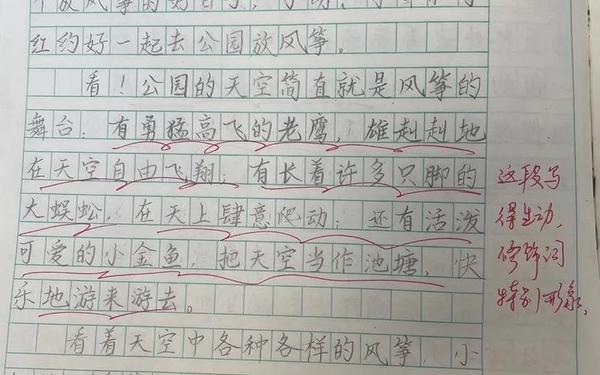 个放风筝的好日子，小明、小
红约好一起去公园放风筝。
看！公园的天空简直就是风筝的
舞台：有勇猛高飞的老鹰，雄赳赳地
在天空自由飞翔；有长着许多只脚的
大蜈蚣，在天上肆意爬动；还有活泼
可爱的小金鱼，把天空当作池塘，快
乐地游来游去。
看着天空中各种各样的风筝，小
这段写
得生动，
修饰词
特别形象，